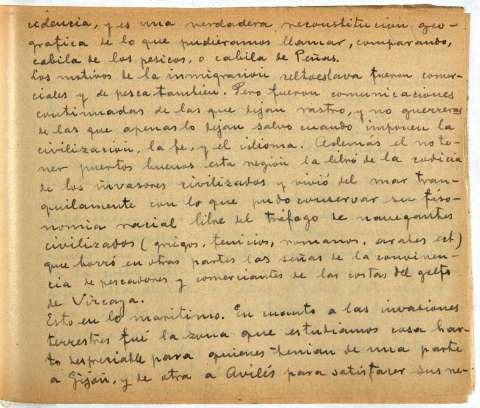 idencia, y es una verdadera reconstitucion geo-
grafica de lo que pudieramos llamar, comparando,
cabila de los pesicos, o cabila de Peñas.
Los motivos de la inmigración celtoeslava fueron comer-
ciales y de pesca tambien. Pero fueron comunicaciones
continuadas de las que dejan rastro, y no guerreras
de las que apenas lo dejan salvo cuando imponen la
civilización, la fe, y el idioma. Además el no te-
ner puertos buenos esta región la libró de la codicia
de los invasores civilizados y vivió del mar tran-
quilamente con lo que pudo conservar su fiso-
nomia racial libre del tráfago de navegantes
civilizados (griegos, fenicios, romanos, arabes ect)
que borró en otras partes las señas de la convinen-
cia de pescadores y comerciantes de las costas del golfo
de Vizcaya.
Esto en lo maritimo. En cuanto a las invasiones
terrestres fué la zona que estudiamos cosa har-
to despreciable para quienes tenian de una parte
a Gijón, y de otra a Avilés para satisfazer sus ne-